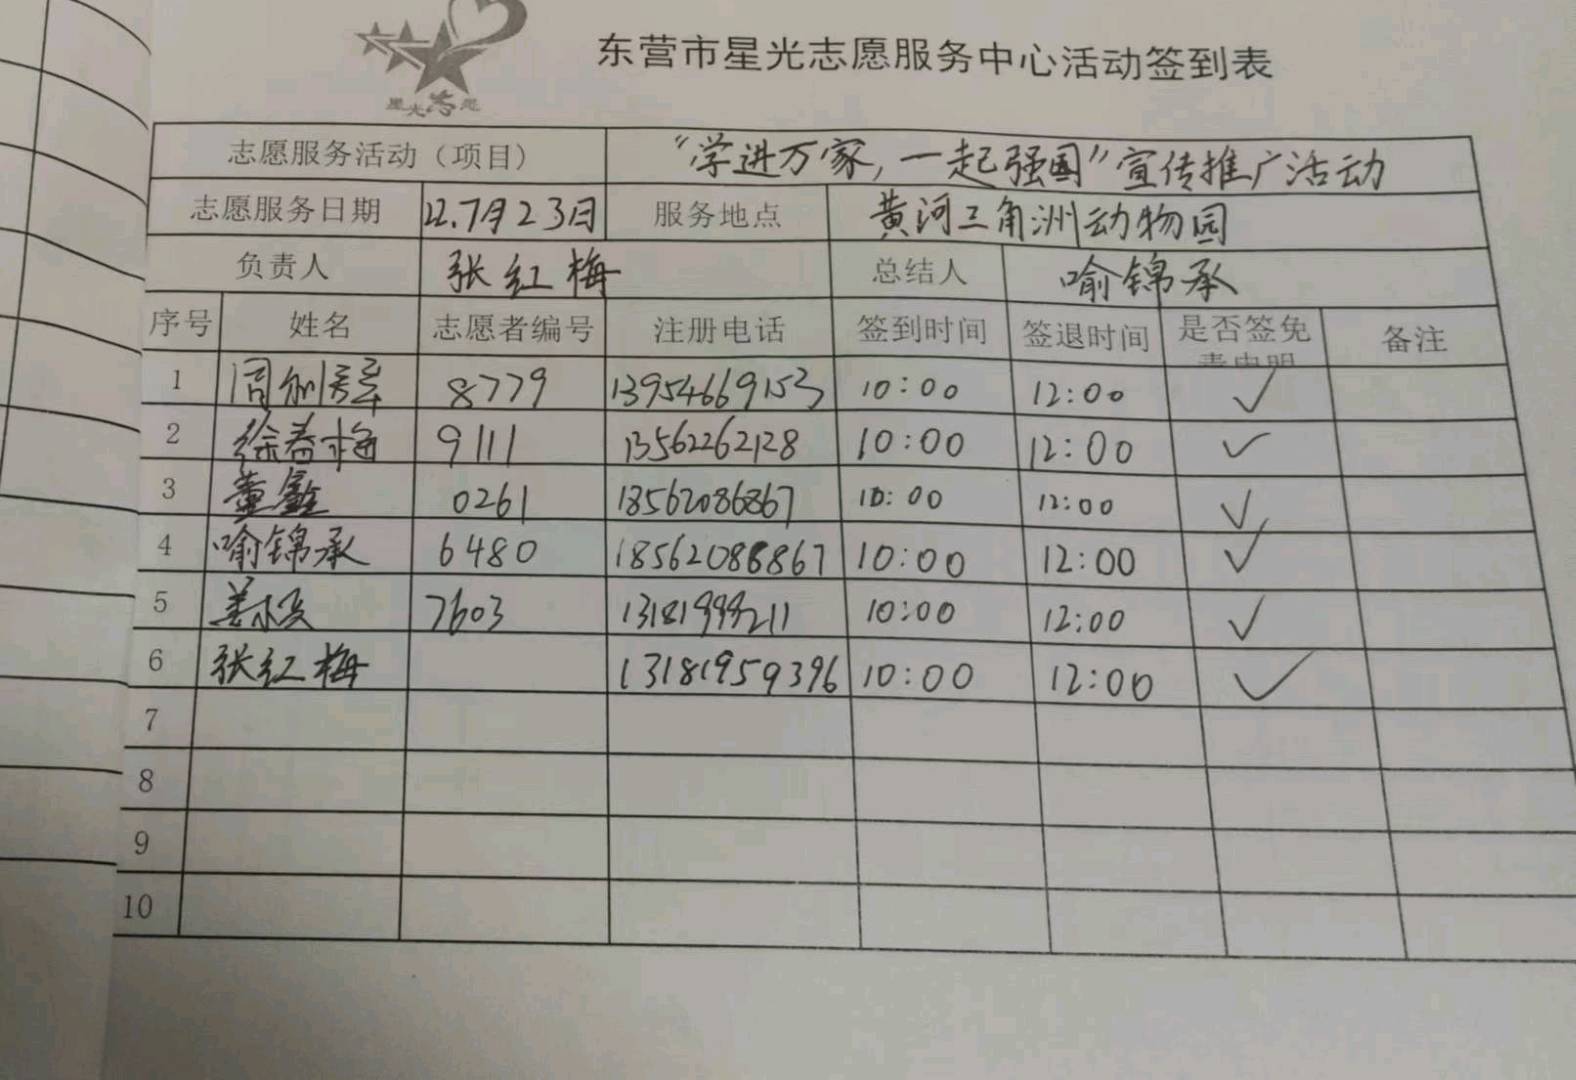 星光志愿
东营市星光志愿服务中心活动签到表
志愿服务活动（项目） “学进万家,一起强国”宣传推广活动
志愿服务日期 22.7月23日 服务地点 黄河三角洲动物园
负责人 张红梅 总结人 喻锦承
序号 姓名 志愿者编号 注册电话 签到时间 签退时间 是否签免责申明 备注
1 8779 13954669153 10:00 12:00 ✓
2 徐春梅 9111 13562262128 10:00 12:00 ✓
3 董鑫 0261 18562086867 10:00 12:00 ✓
4 喻锦承 6480 18562088867 10:00 12:00 ✓
5 7603 13181999211 10:00 12:00 ✓
6 张红梅 13181959396 10:00 12:00 ✓
7
8
9
10